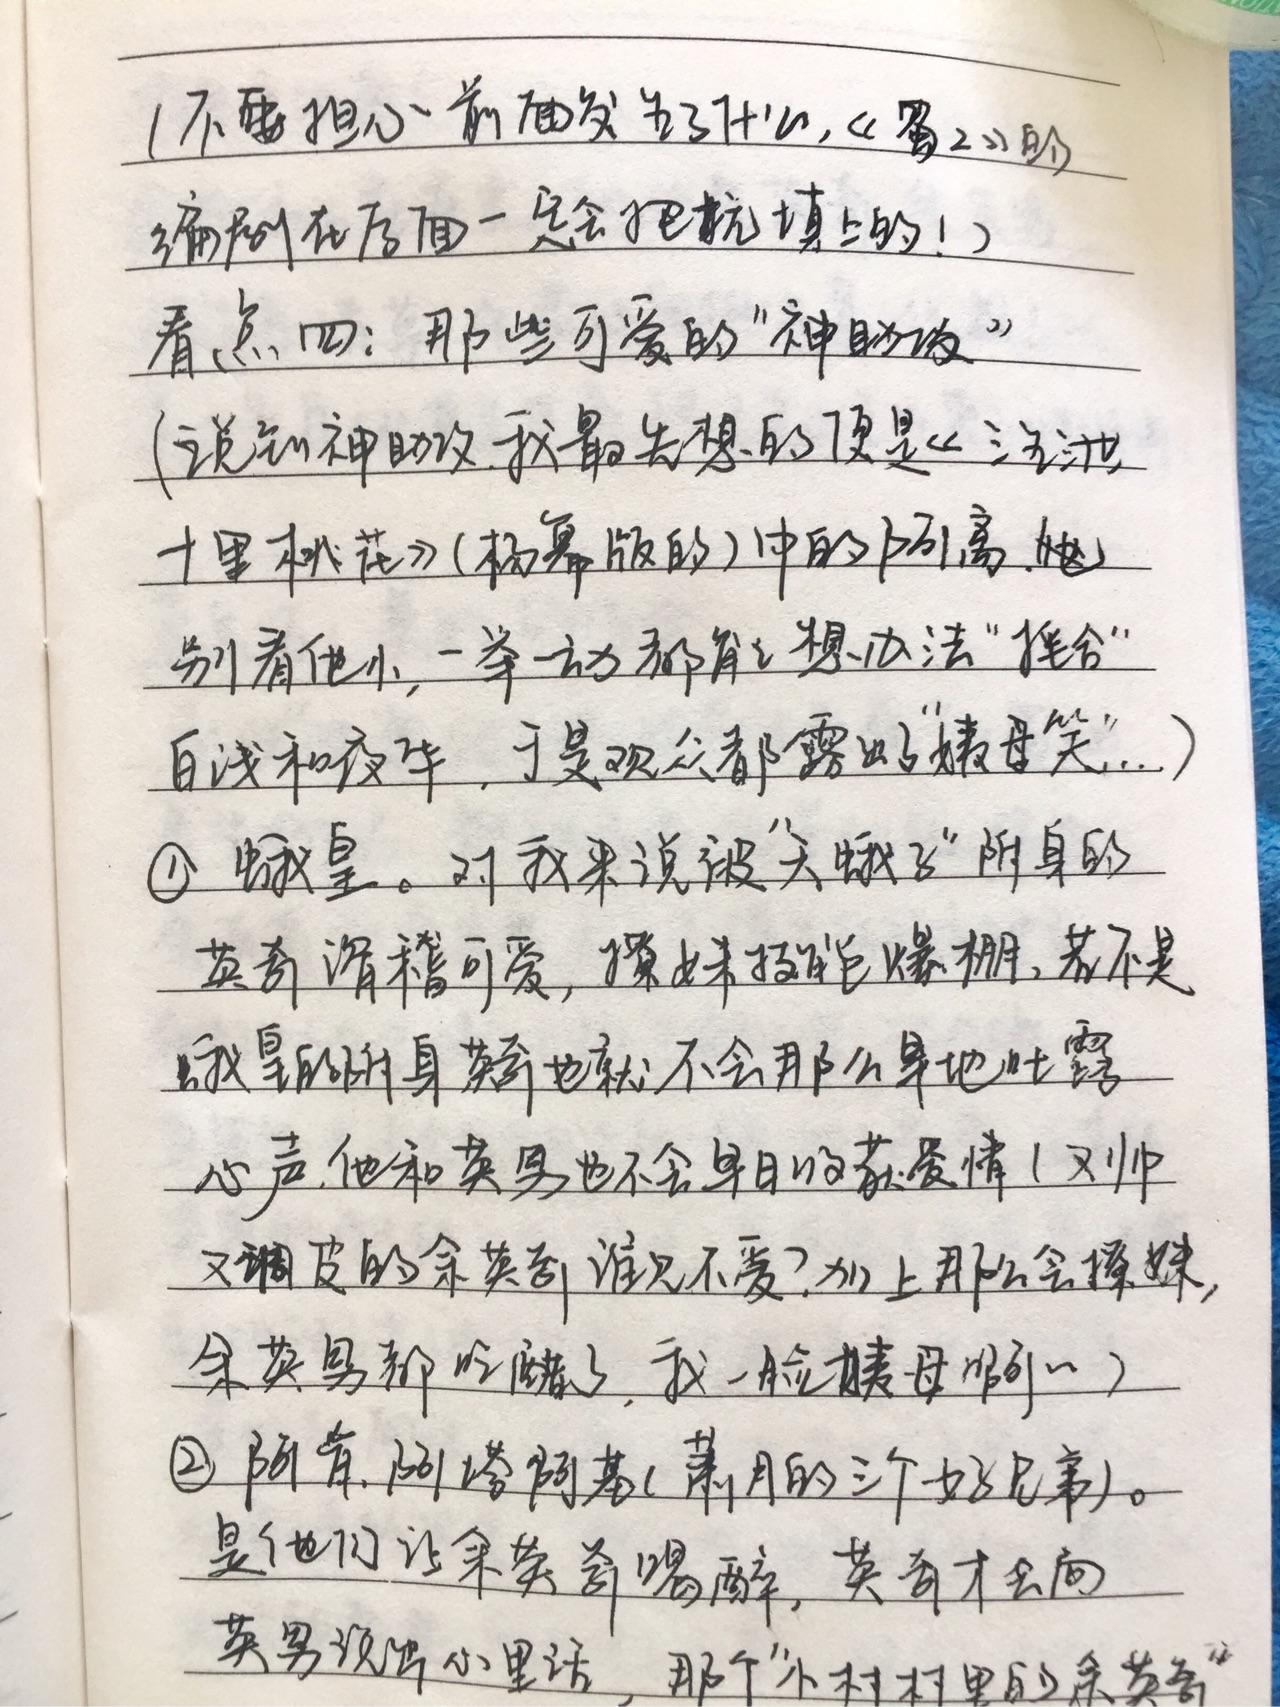 (不要担心前面发生了什么,《蜀2》的
编剧在后面一定会把坑填上的!)
看点四:那些可爱的"神助攻"
(说到神助攻,我最先想的便是《三生三世
十里桃花》(杨幂版的)中的阿离,他
别看他小,一举一动都能想办法"撮合"
白浅和夜华,于是观众都露出了"姨母笑"…)
① 蛾皇。对我来说被"大蛾子"附身的
英奇滑稽可爱,撩妹技能包爆棚,若不是
蛾皇的附身英奇也就不会那么早地吐露
心声,他和英男也不会早日收获爱情(又帅
又调皮的余英奇谁见不爱?加上那么会撩妹,
余英男都吃醋了,我一脸姨母啊…)
② 阿肯,阿塔,阿基(萧月的三个好兄弟)。
是他们让余英奇喝醉,英奇才会向
英男说出心里话,那个"小村村里的余英奇"